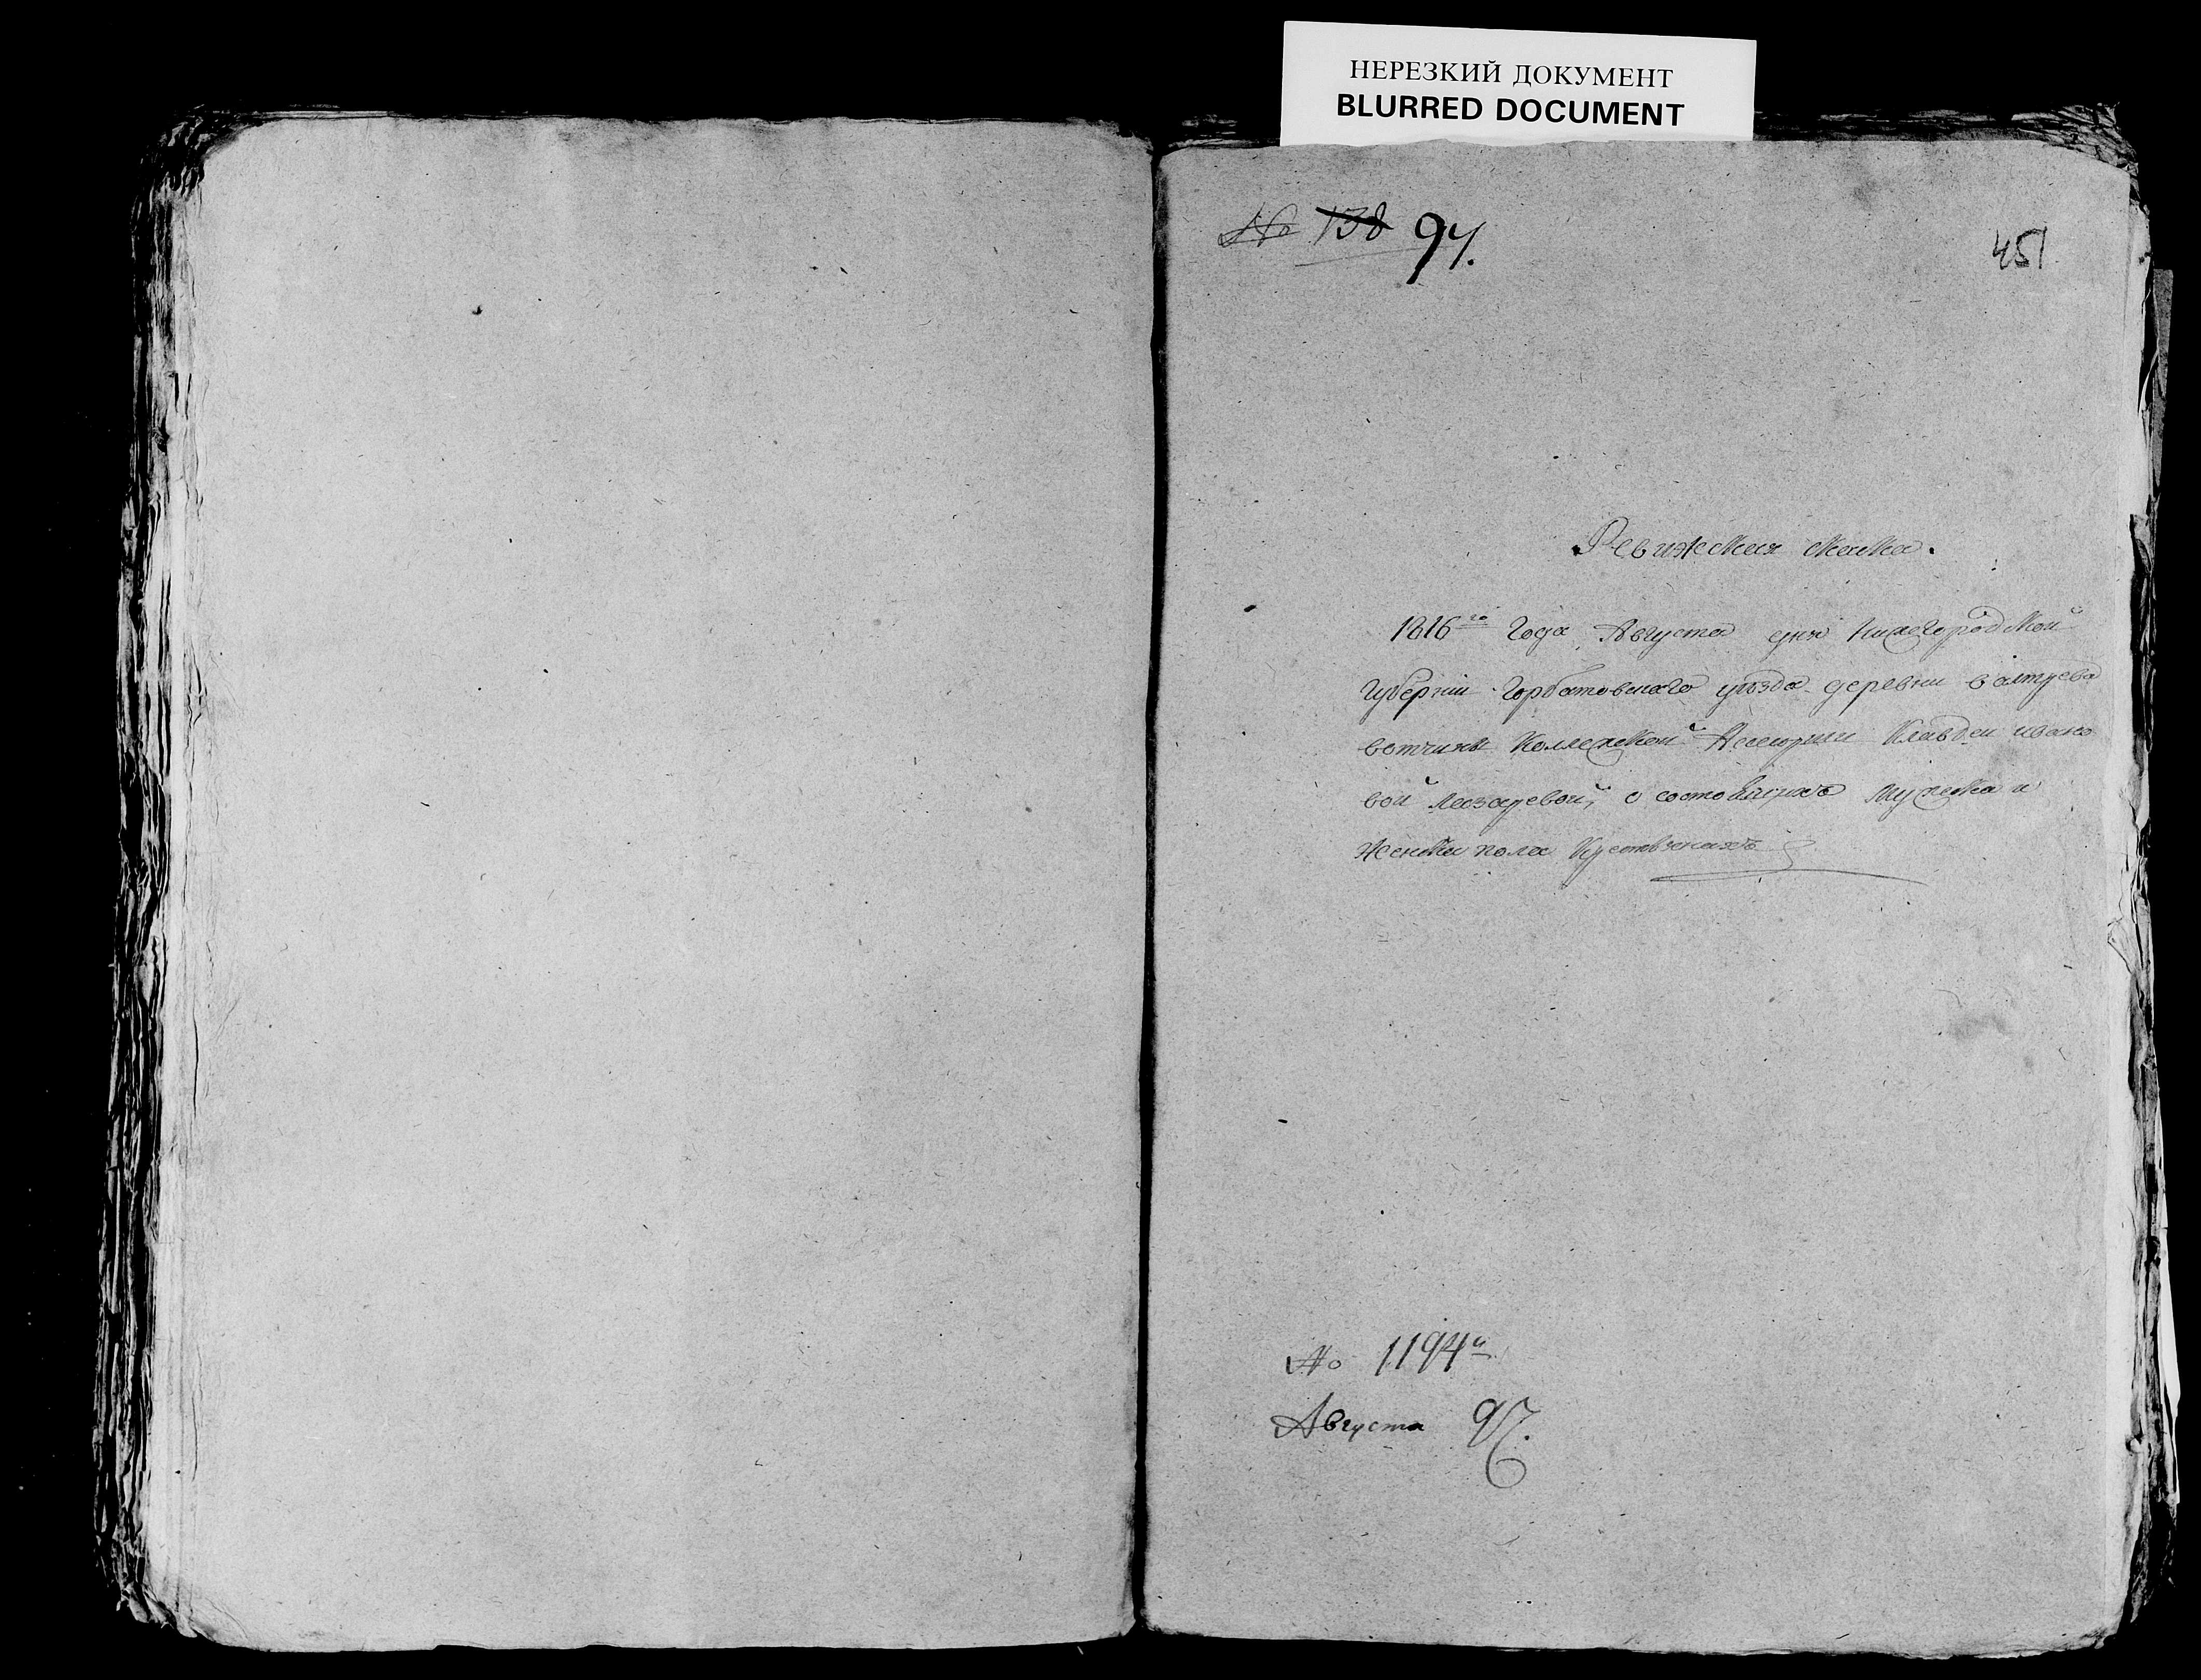 НЕРЕЗКИЙ ДОКУМЕНТ
BLURRED DOCUMENT
№ 138 94.
451
Ревижская скаска.
1816го Года Августа дня Нижегородской
Губернии Горбатовского уѣзда деревни
вотчины Коллежской Ассесорши Клавдеи ивано
вой лазаревой, о состоящихъ мужеска и
Женска пола Крестьянахъ
№ 1194й
Августа